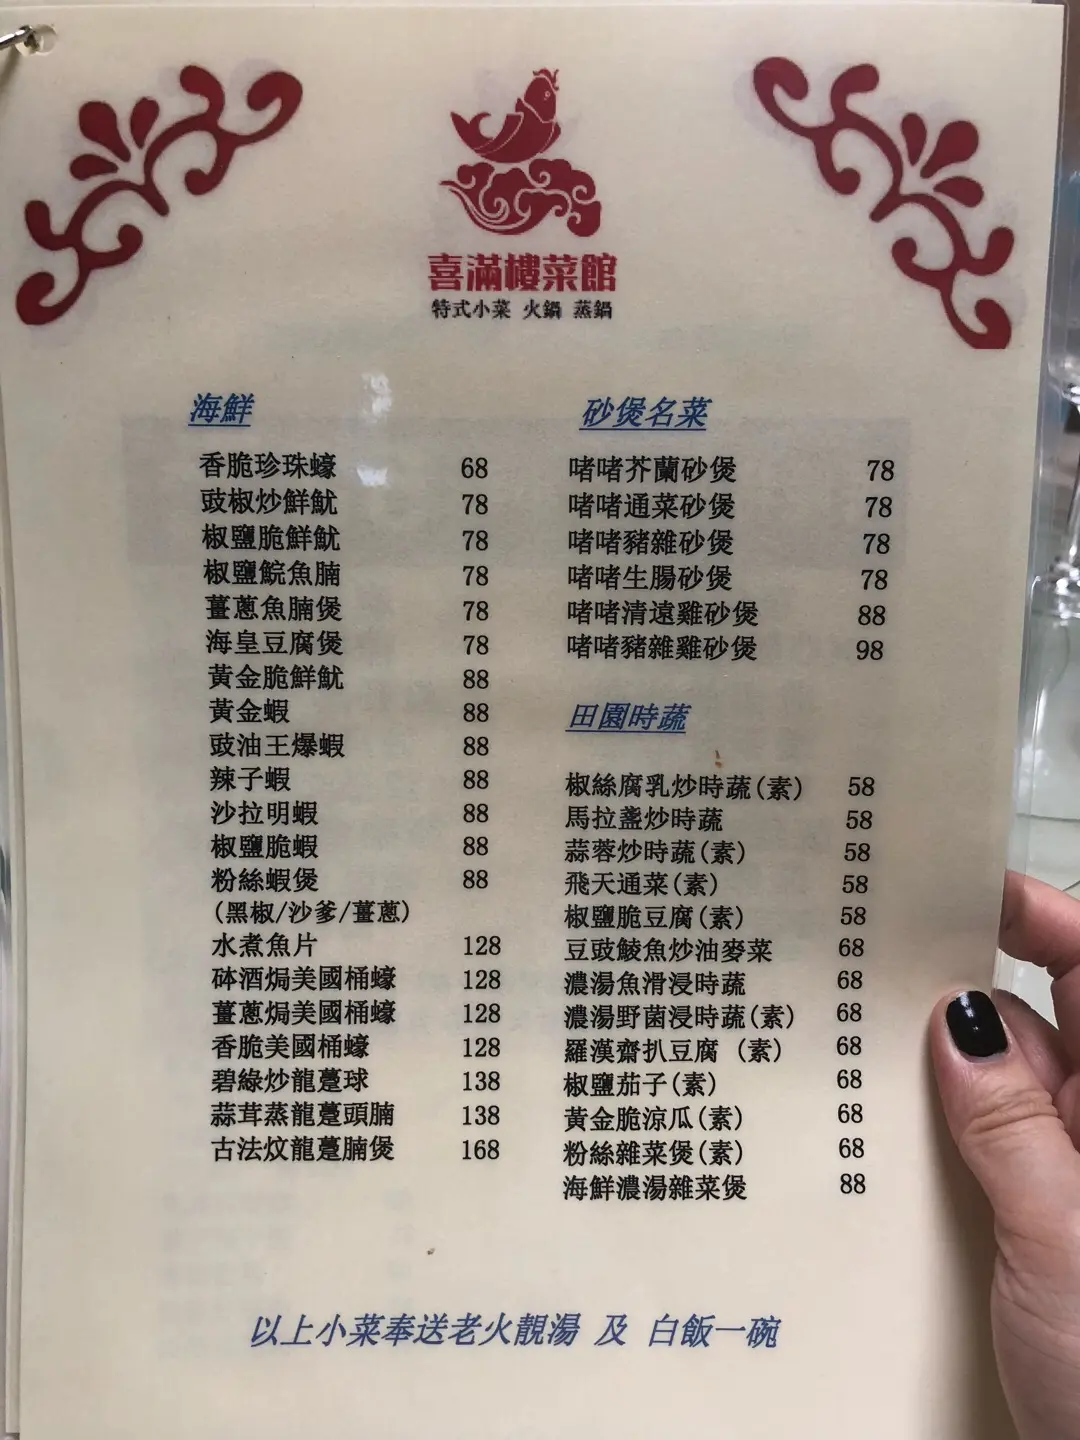 喜滿樓菜館
特式小菜 火鍋 蒸鍋
海鮮
香脆珍珠蠔 68
豉椒炒鮮魷 78
椒鹽脆鮮魷 78
椒鹽鯇魚腩 78
薑蔥魚腩煲 78
海皇豆腐煲 78
黃金脆鮮魷 88
黃金蝦 88
豉油王爆蝦 88
辣子蝦 88
沙拉明蝦 88
椒鹽脆蝦 88
粉絲蝦煲 88
(黑椒/沙爹/薑蔥)
水煮魚片 128
砵酒焗美國桶蠔 128
薑蔥焗美國桶蠔 128
香脆美國桶蠔 128
碧綠炒龍躉球 138
蒜茸蒸龍躉頭腩 138
古法炆龍躉腩煲 168
砂煲名菜
啫啫芥蘭砂煲 78
啫啫通菜砂煲 78
啫啫豬雜砂煲 78
啫啫生腸砂煲 78
啫啫清遠雞砂煲 88
啫啫豬雜雞砂煲 98
田園時蔬
椒絲腐乳炒時蔬(素) 58
馬拉盞炒時蔬 58
蒜蓉炒時蔬(素) 58
飛天通菜(素) 58
椒鹽脆豆腐(素) 58
豆豉鯪魚炒油麥菜 68
濃湯魚滑浸時蔬 68
濃湯野菌浸時蔬(素) 68
羅漢齋扒豆腐 (素) 68
椒鹽茄子(素) 68
黃金脆涼瓜(素) 68
粉絲雜菜煲(素) 68
海鮮濃湯雜菜煲 88
以上小菜奉送老火靚湯 及 白飯一碗